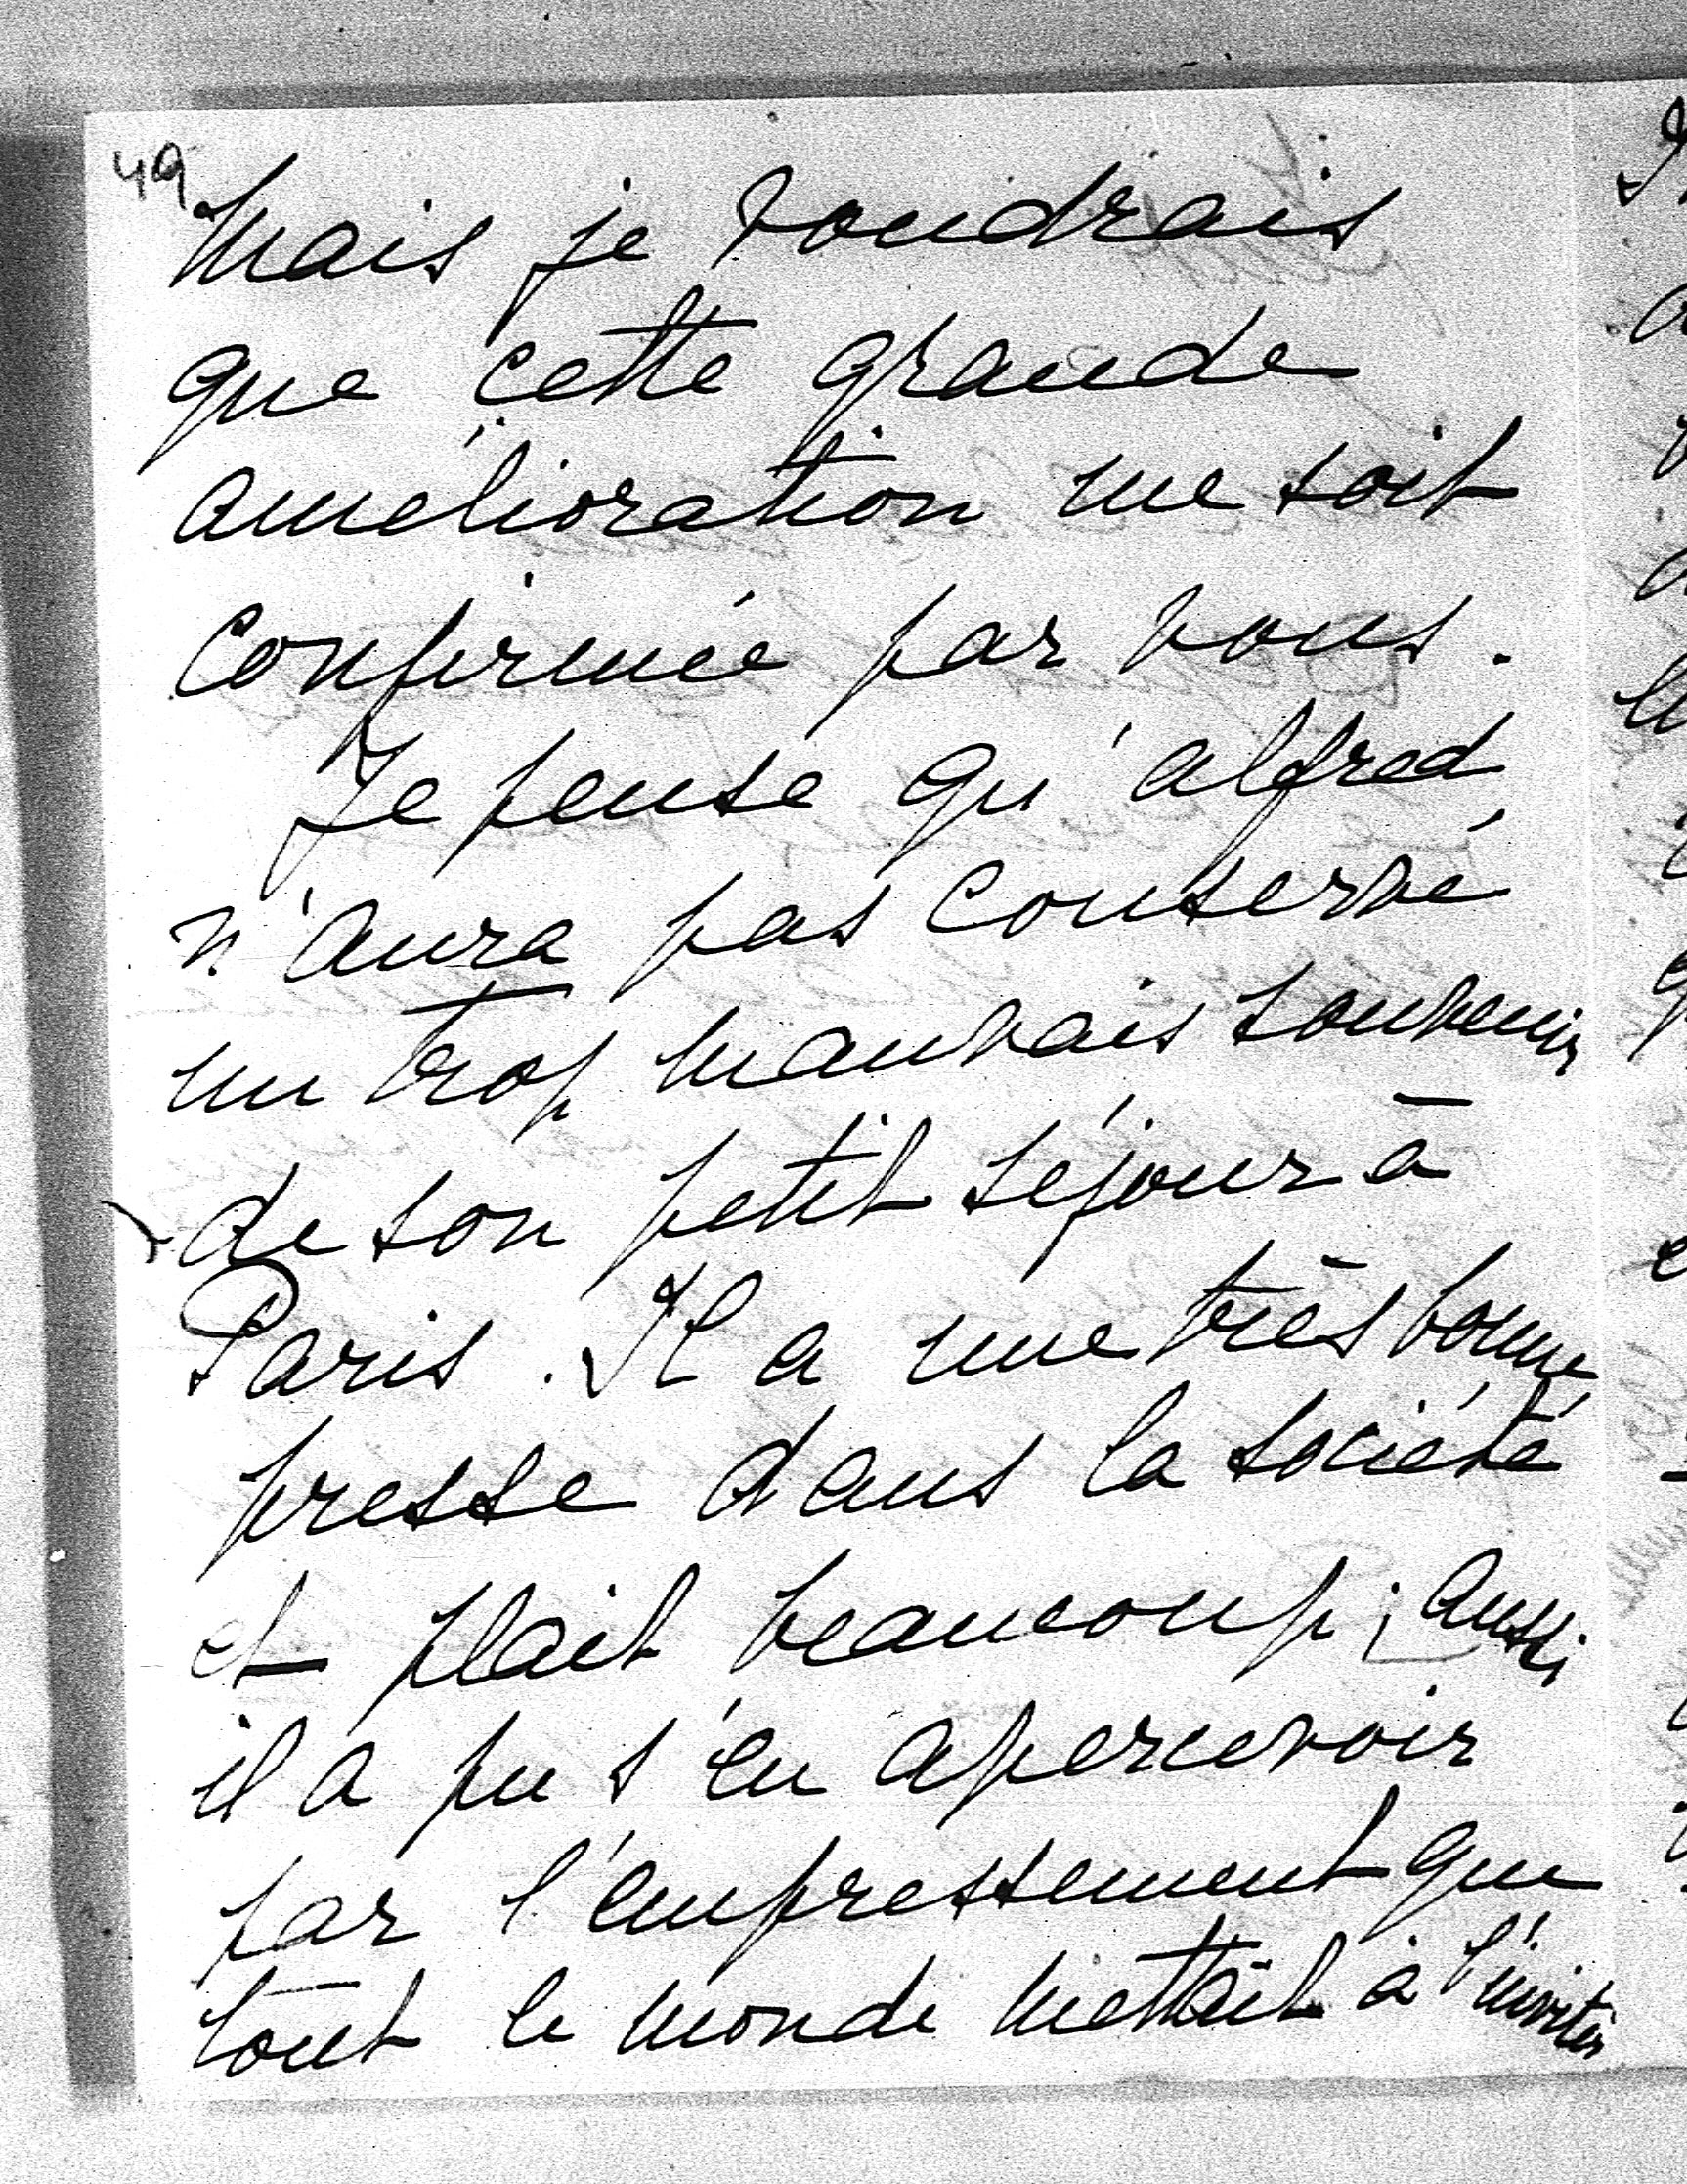 49
Mais je voudrais
que cette grande
amélioration me soit
confirmée par vous.
Je pense qu'alfred
n'aura pas conservé
un trop mauvais souvenir
de son petit séjour à
Paris. Il a une très bonne
presse dans la société
et plait beaucoup; aussi
il a pu s'en apercevoir
par l'empressement que
tout le monde mettait à l'inviter